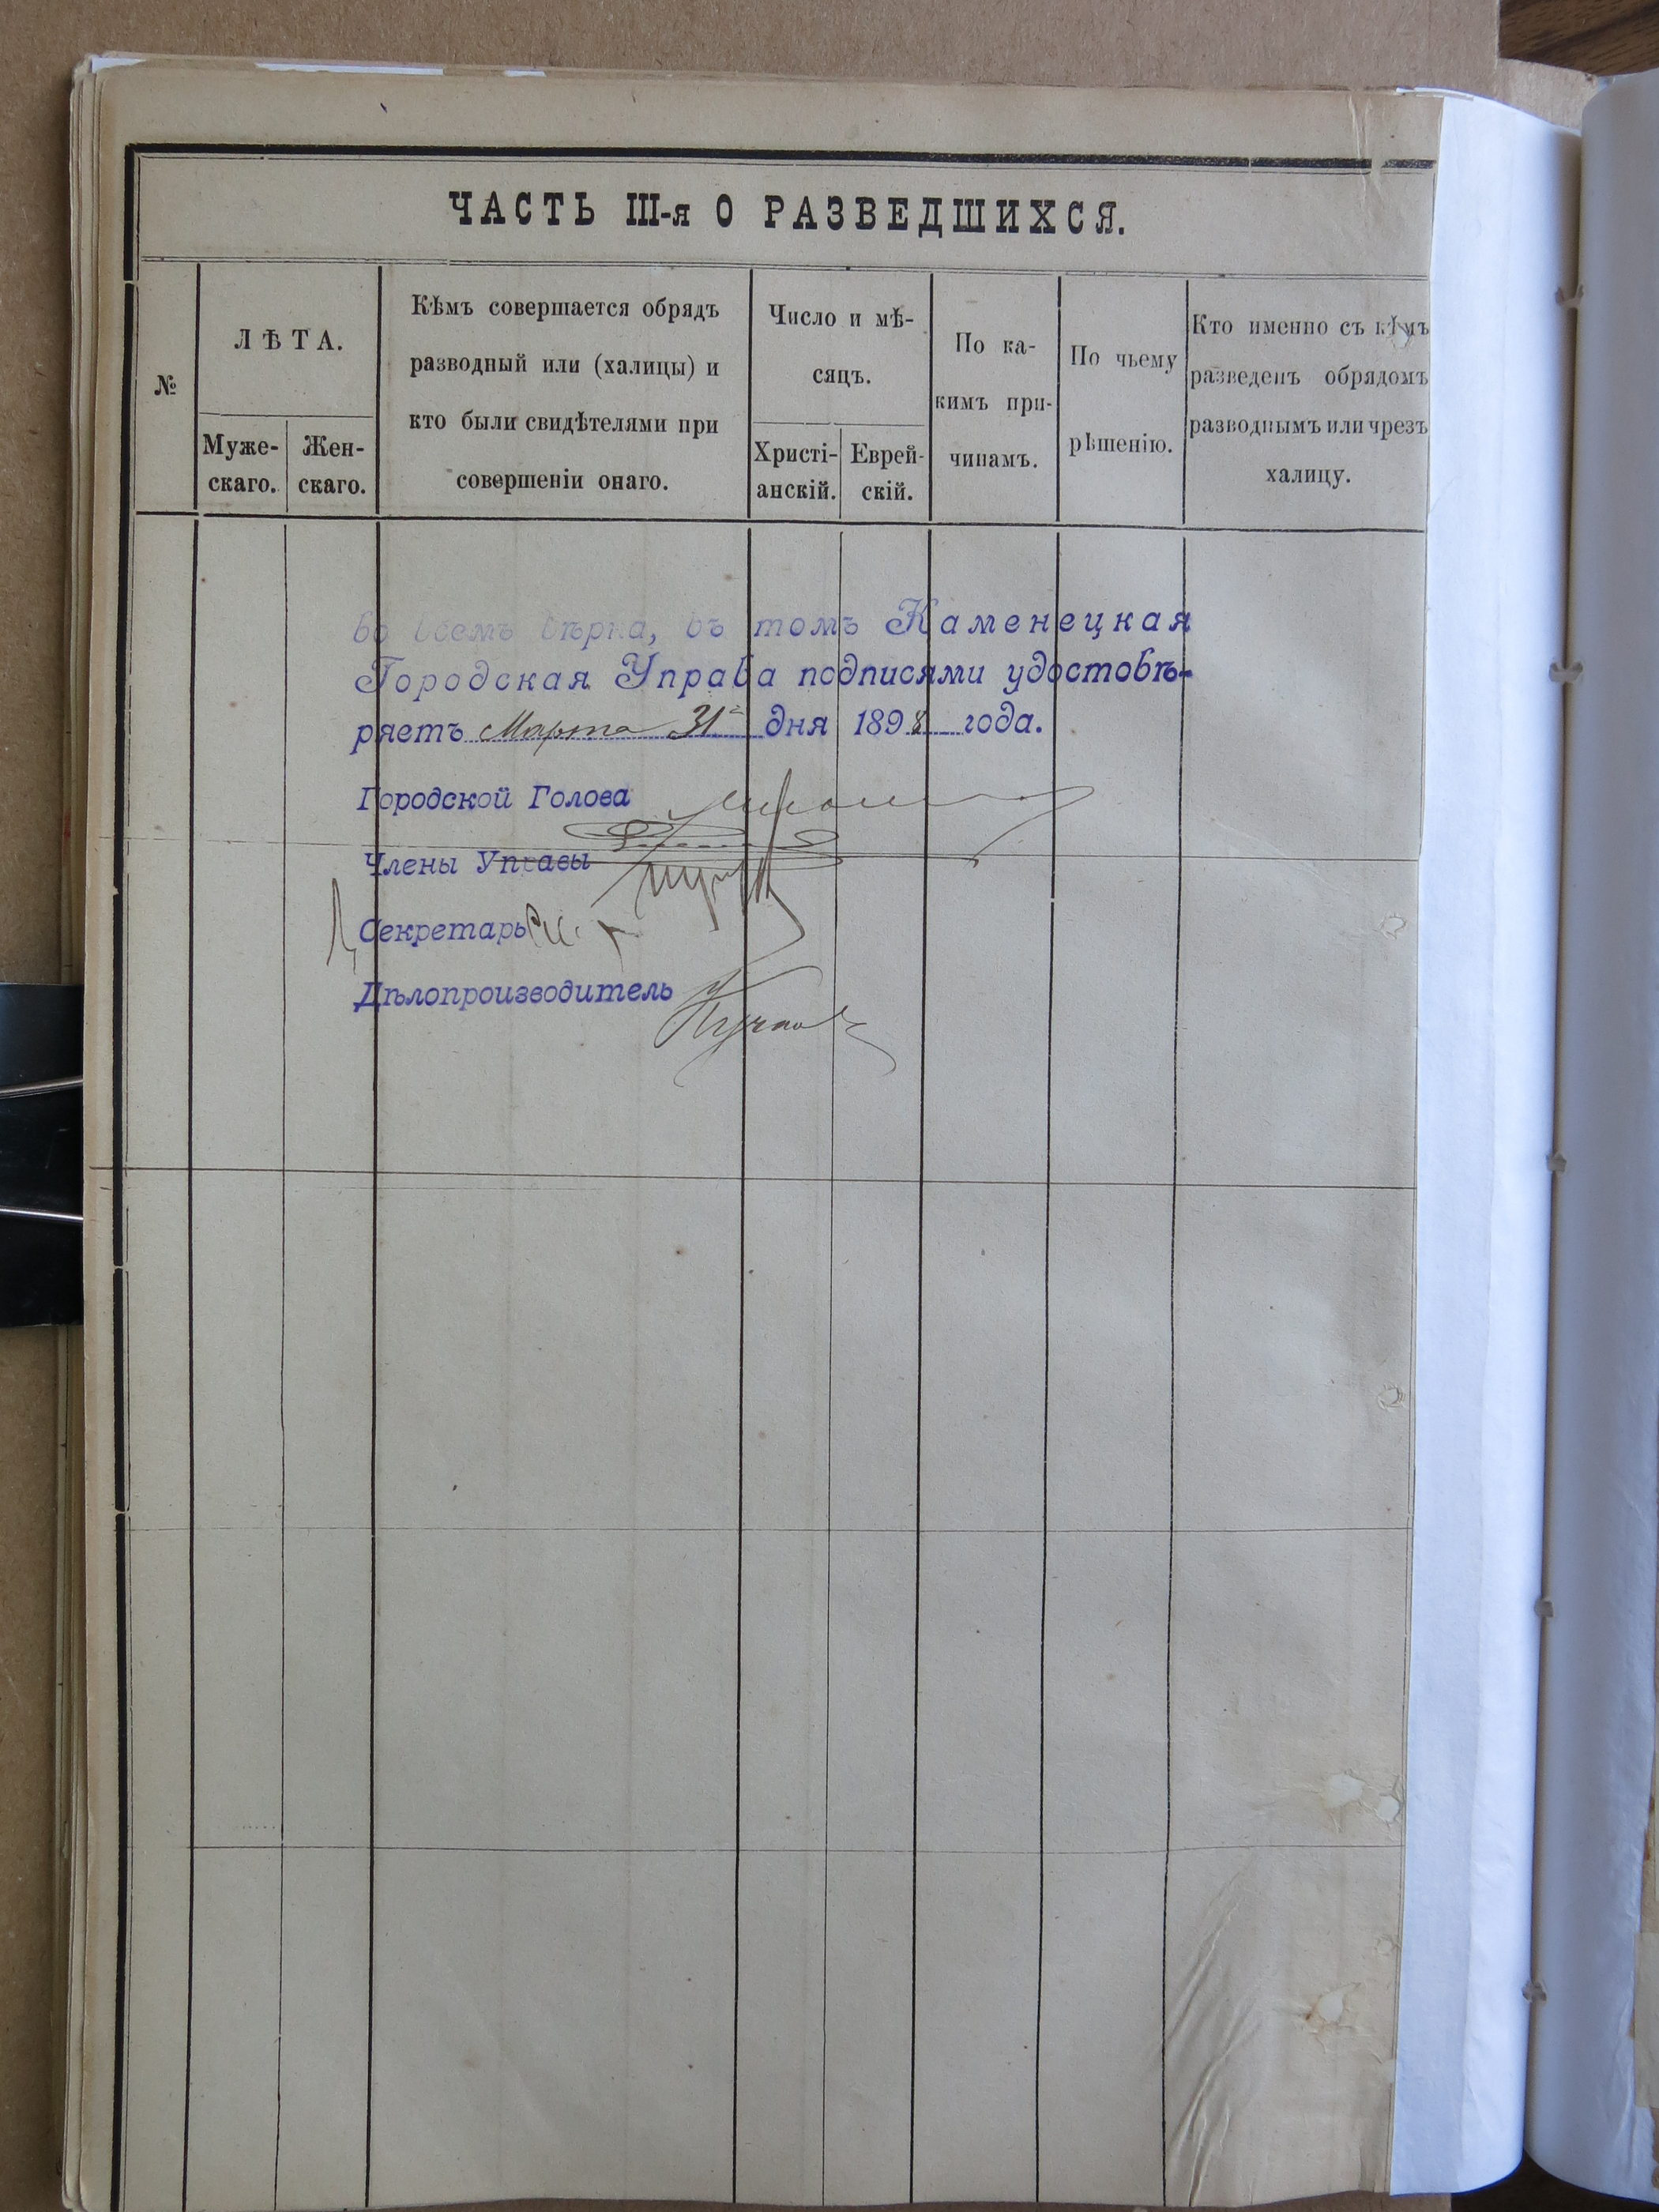 ЧАСТЬ III-я О РАЗВЕДШИХСЯ.
№
ЛѢТА.
Муже-
скаго.
Жен-
скаго.
Кѣмъ совершается обрядъ
разводный или (халицы) и
кто были свидѣтелями при
совершеніи онаго.
Число и мѣ-
сяцъ.
Христі-
анскій.
Еврей-
скій.
По ка-
кимъ при-
чинамъ.
По чьему
рѣшенію.
Кто именно съ кѣмъ
разведенъ обрядомъ
разводнымъ или чрезъ
халицу.
во всемъ вѣрна, въ томъ Каменецкая
Городская Управа подписями удостовѣ-
ряетъ Марта 31 дня 1898 года.
Городской Голова
Члены Управы
Секретарь
Дѣлопроизводитель